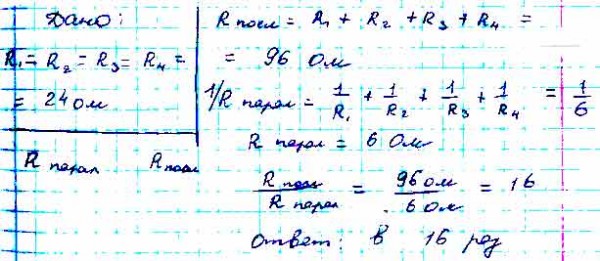 Дано:
R₁ = R₂ = R₃ = R₄ =
= 24 ом
R парал R посл
R посл = R₁ + R₂ + R₃ + R₄ =
= 96 Ом
1/R парал = 1/R₁ + 1/R₂ + 1/R₃ + 1/R₄ = 1/6
R парал = 6 Ом
R посл / R парал = 96 ом / 6 Ом = 16
Ответ: в 16 раз